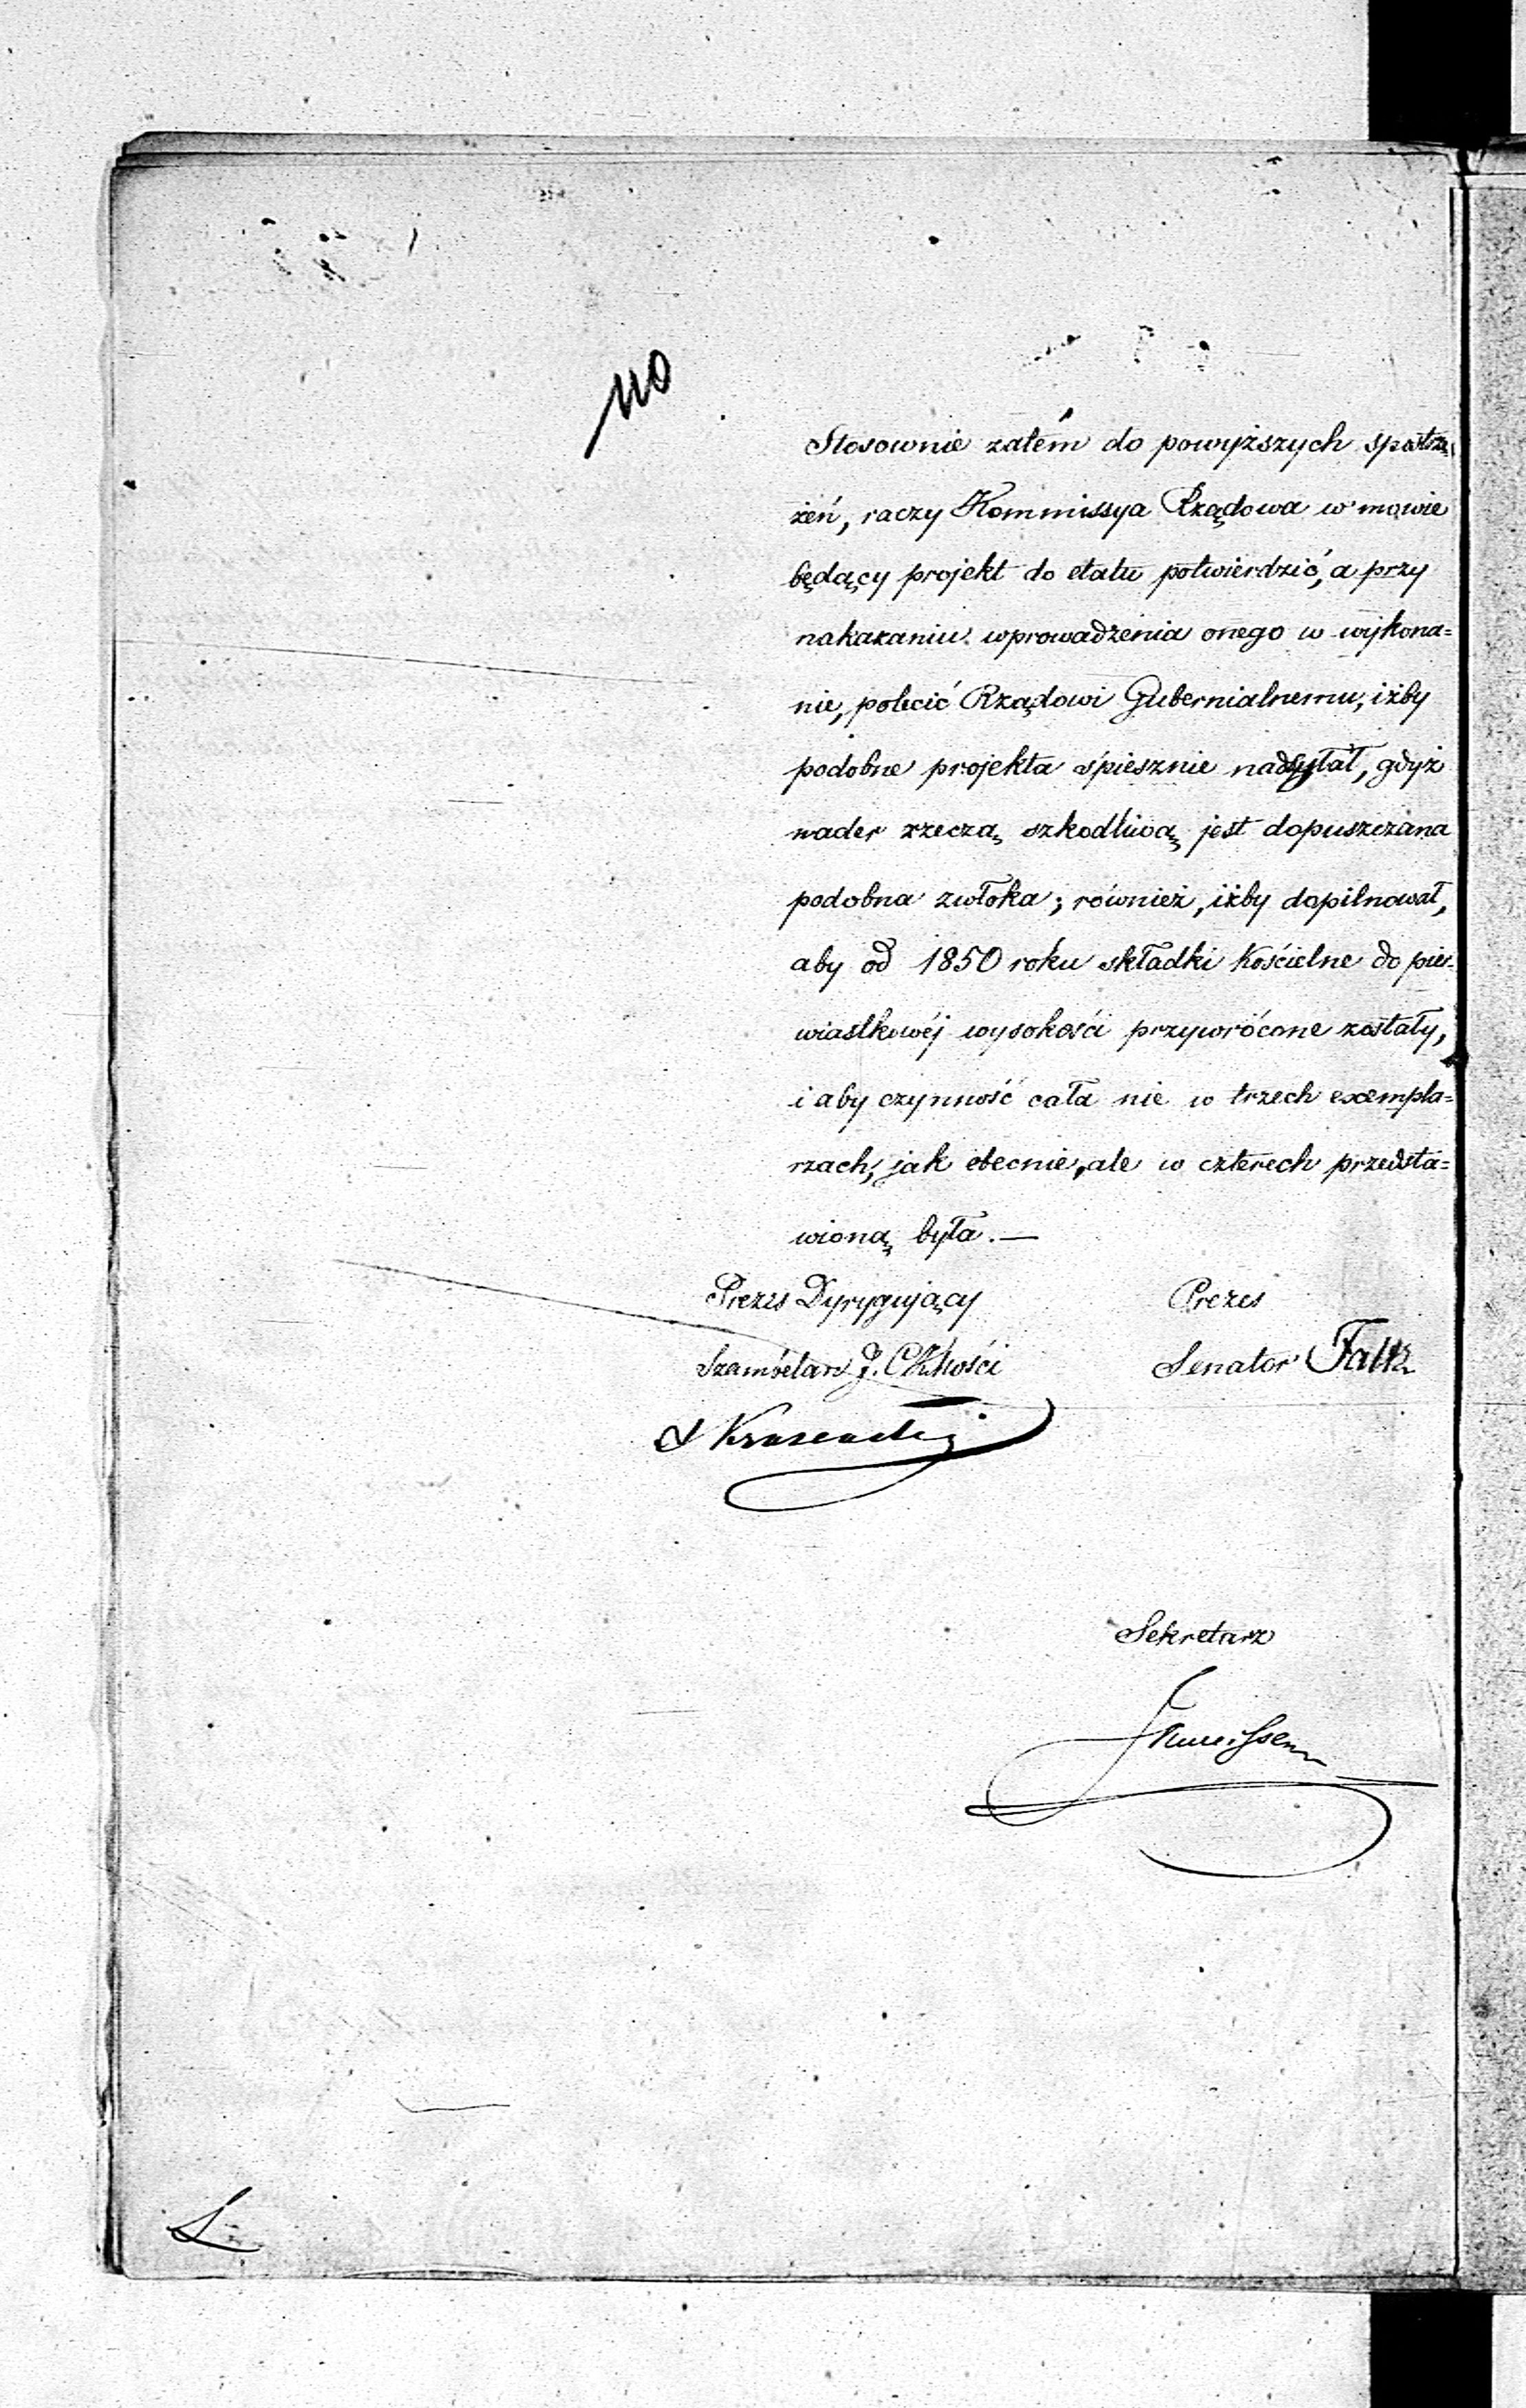 110
Stosownie zatém do powyższych spostrze
żeń, raczy Kommissya Rządowa w mowie
będący projekt do etatu potwierdzić, a przy
nakazaniu wprowadzenia onego w wykona=
nie, polecić Rządowi Gubernialnemu, iżby
podobne projekta śpiesznie nadsyłał, gdyż
nader rzeczą szkodliwą jest dopuszczana
podobna zwłoka; również, iżby dopilnował,
aby od 1850 roku składki Kościelne do pier-
wiastkowéj wysokości przywrócone zostały,
i aby czynność cała nie w trzech exempla=
rzach, jak obecnie, ale w czterech przedsta=
wioną była.—
Prezes Dyrygujący Prezes
Szambelan J. C. K. Mości Senator Faltz
Sekretarz
L